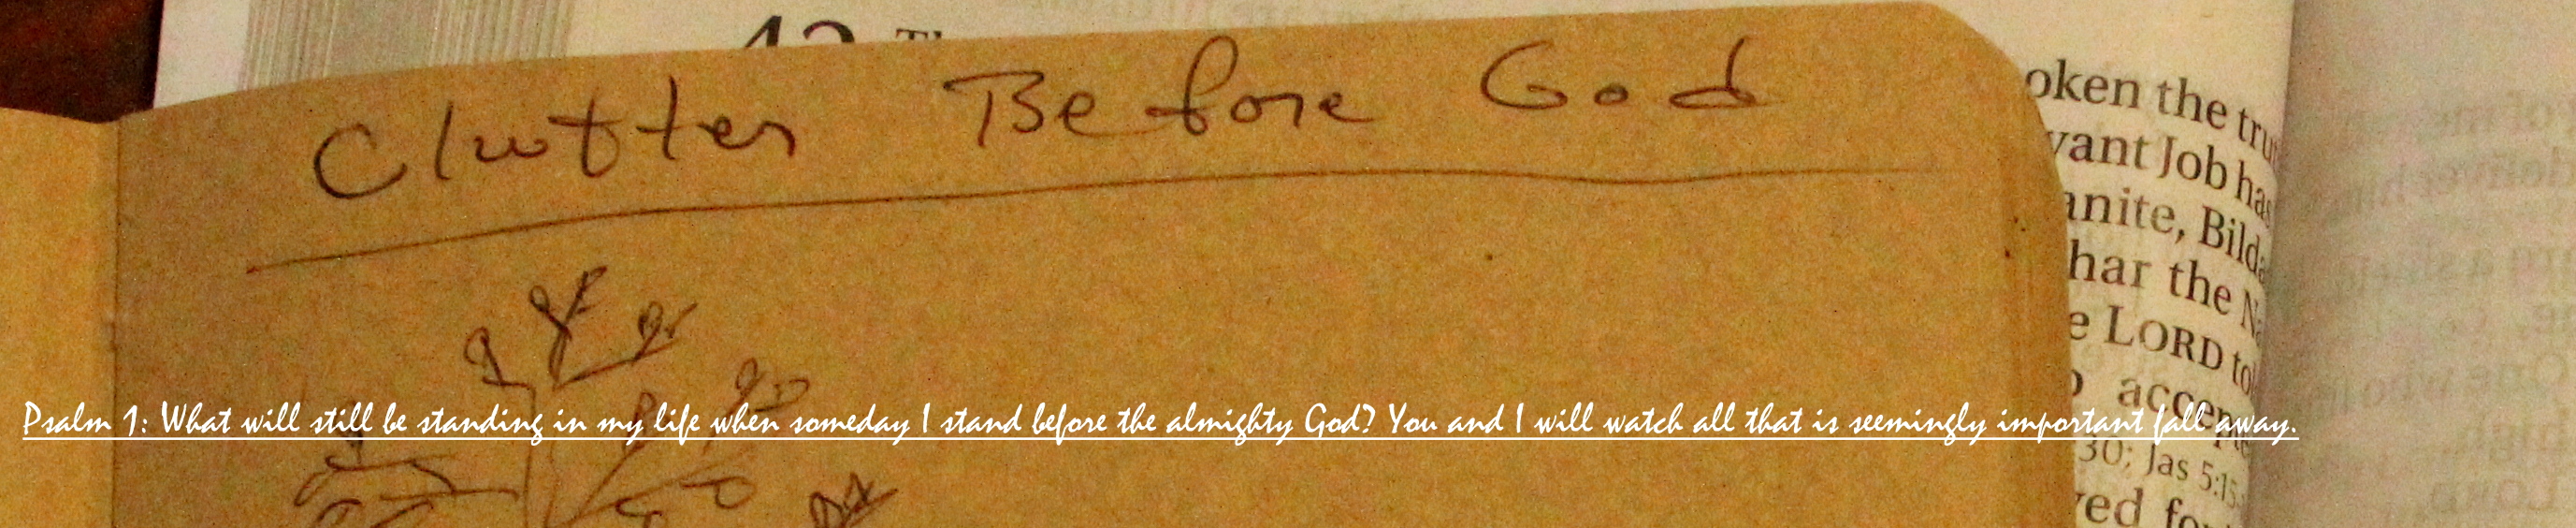 42
Clutter Before God
oken the tru
vant Job has
anite, Bild
har the N
e LORD to
accep
30; Jas 5:15
ved fo
Psalm 1: What will still be standing in my life when someday I stand before the almighty God? You and I will watch all that is seemingly important fall away.